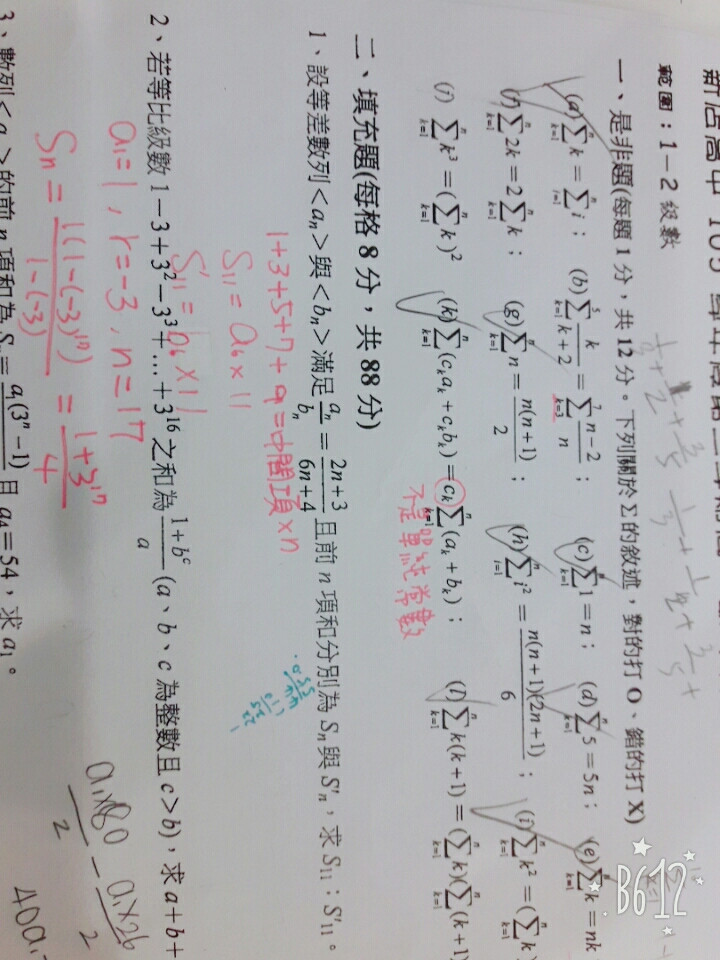 範圍：1－2 級數
一、是非題(每題 1 分，共 12 分。下列關於Σ的敘述，對的打 O、錯的打 X)
(a) \sum_{k=1}^{n} k = \sum_{i=1}^{n} i； (b) \sum_{k=1}^{5} \frac{k}{k+2} = \sum_{k=3}^{7} \frac{n-2}{n}； (c) \sum_{k=1}^{n} 1 = n； (d) \sum_{k=1}^{n} 5 = 5n； (e) \sum_{k=1}^{n} k = nk
(f) \sum_{k=1}^{n} 2k = 2\sum_{k=1}^{n} k； (g) \sum_{k=1}^{n} n = \frac{n(n+1)}{2}； (h) \sum_{i=1}^{n} i^2 = \frac{n(n+1)(2n+1)}{6}； (i) \sum_{k=1}^{n} k^2 = (\sum_{k=1}^{n} k)
(j) \sum_{k=1}^{n} k^3 = (\sum_{k=1}^{n} k)^2 (k) \sum_{k=1}^{n} (c_k a_k + c_k b_k) = c_k \sum_{k=1}^{n} (a_k + b_k)； (l) \sum_{k=1}^{n} k(k+1) = (\sum_{k=1}^{n} k)(\sum_{k=1}^{n} (k+1)
不是單純常數
二、填充題(每格 8 分，共 88 分)
1、設等差數列<a_n>與<b_n>滿足 \frac{a_n}{b_n} = \frac{2n+3}{6n+4} 且前 n 項和分別為 S_n 與 S'_n，求 S_{11}：S'_{11}。
1+3+5+7+9=中間項×n
S_{11} = a_6 × 11
S'_{11} = b_6 × 11
2、若等比級數 1－3+3^2－3^3+…+3^{16} 之和為 \frac{1+b^c}{a} (a、b、c 為整數且 c>b)，求 a+b+
a_1=1，r=-3，n=17
S_n = \frac{1(1-(-3)^{17})}{1-(-3)} = \frac{1+3^{17}}{4}
3、數列<a_n>的前 n 項和為 S_n = \frac{a_1(3^n-1)}{} 且 a_4=54，求 a_1。